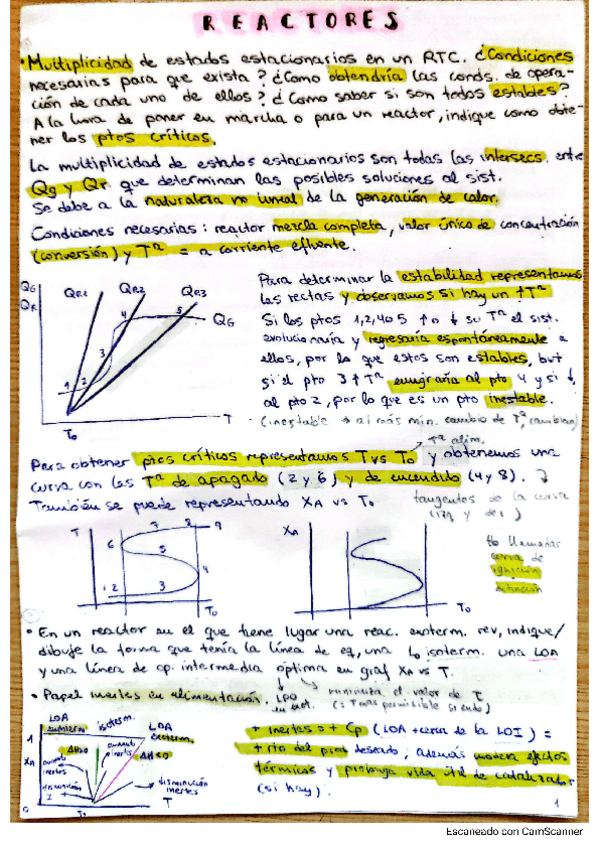 REACTORES
• Multiplicidad de estados estacionarios en un RTC. ¿Condiciones
necesarias para que exista? ¿Como obtendría las conds. de opera-
ción de cada uno de ellos? ¿Como saber si son todos estables?
A la hora de poner en marcha o para un reactor, indique como obte-
ner los ptos críticos.
La multiplicidad de estados estacionarios son todas las intersecs. entre
Qg y Qr que determinan las posibles soluciones al sist.
Se debe a la naturaleza no lineal de la generación de calor.
Condiciones necesarias: reactor mezcla completa, valor único de concentración
(conversión) y Tª = a corriente efluente.
Para determinar la estabilidad representamos
las rectas y observamos si hay un ↑Tª
Si los ptos 1,2,4 o 5 ↑ o ↓ su Tª el sist.
evolucionaría y regresaría espontáneamente a
ellos, por lo que estos son estables, but
si el pto 3 ↑ Tª emigraría al pto 4 y si ↓
al pto 2, por lo que es un pto inestable.
(inestable → al más mín. cambio de Tª,
QG
QR
QR1
QR2
QR3
QG
1
2
3
4
5
T0
T
Tª alim.
Para obtener ptos críticos representamos T vs T0 y obtenemos una
curva con las Tª de apagado (2 y 6) y de encendido (4 y 8).
También se puede representar XA vs T0
tangentes de la curva
(izq y der)
T
7 8 9
6
5
4
1 2 3
T0
XA
T0
llamadas
curva de
ignición
extinción
• En un reactor en el que tiene lugar una reac. exoterm. rev, indique/
dibuje la forma que tenía la línea de eq, una isoterm. una LOA
y una línea de op. intermedia óptima en graf XA vs T.
LPO
minimiza el valor de τ
(= T max permisible si endo)
• Papel inertes en alimentación.
LOA
endoterm
isoterm.
LOA
exoterm.
1
XA
0
ΔH>0
ΔH<0
aumento
inertes
aumento
inertes
disminución
I
disminución
inertes
T0
T
+ inertes = + Cp (LOA + cerca de la LOI) =
+ rto del prod deseado, además modera efectos
térmicos y prolonga vida útil de catalizador
(si hay).
1
Escaneado con CamScanner